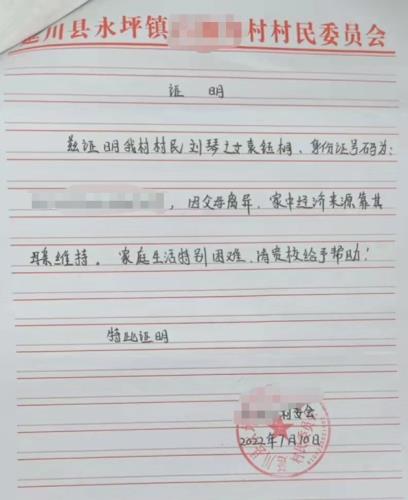 延川县永坪镇村村民委员会
证 明
兹证明我村村民刘琴之女袁钰桐、身份证号码为:
,因父母离异、家中经济来源靠其
母亲维持。家庭生活特别困难、请贵校给予帮助!
特此证明
村委会
2022年1月10日